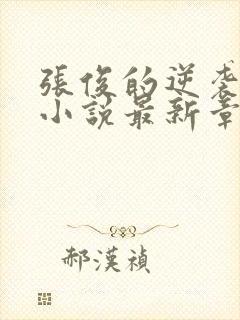 張俊的逆袭
小說最新章
郝漢禎